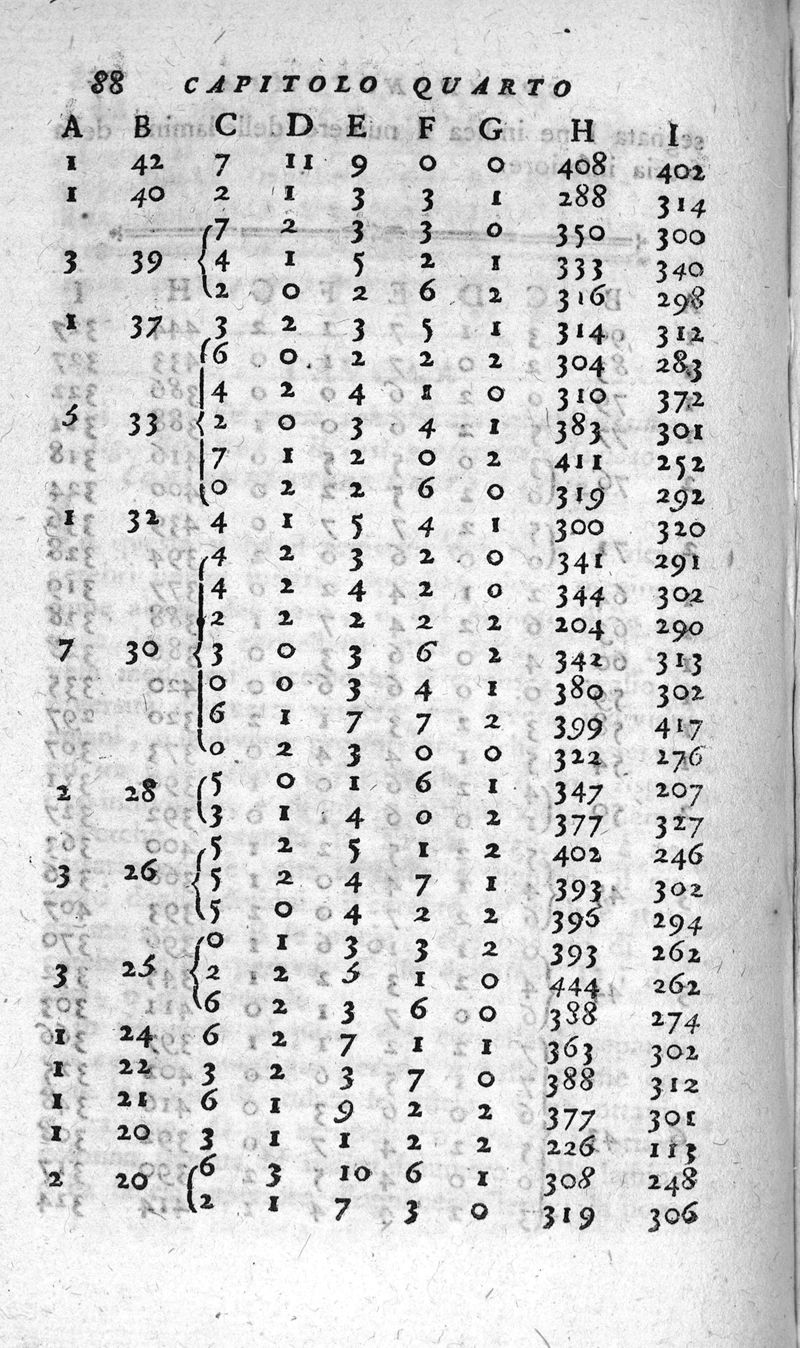 88 CAPITOLO QUARTO
A B C D E F G H I
1 42 7 11 9 0 0 408 402
1 40 2 1 3 3 1 288 314
7 2 3 3 0 350 300
3 39 4 1 5 2 1 333 340
2 0 2 6 2 316 298
1 37 3 2 3 5 1 314 312
6 0 2 2 2 304 283
4 2 4 1 0 310 372
5 33 2 0 3 4 1 383 301
7 1 2 0 2 411 252
0 2 2 6 0 319 292
1 32 4 1 5 4 1 300 320
4 2 3 2 0 341 291
4 2 4 2 0 344 302
2 2 2 2 2 204 290
7 30 3 0 3 6 2 342 313
0 0 3 4 1 380 302
6 1 7 7 2 399 417
0 2 3 0 0 322 276
2 28 5 0 1 6 1 347 207
3 1 4 0 2 377 327
5 2 5 1 2 402 246
3 26 5 2 4 7 1 393 302
5 0 4 2 2 396 294
0 1 3 3 2 393 262
3 25 2 2 5 1 0 444 262
6 2 3 6 0 388 274
1 24 6 2 7 1 1 363 302
1 22 3 2 3 7 0 388 312
1 21 6 1 9 2 2 377 301
1 20 3 1 1 2 2 226 113
2 20 6 3 10 6 1 308 248
2 1 7 3 0 319 306